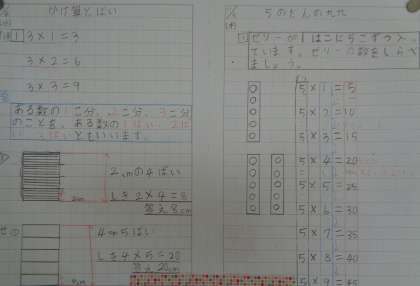 かけ算とばい
1 3×1=3
3×2=6
3×3=9
ある数の1こ分、2こ分、3こ分
のことを、ある数の1ばい、2ば
い、3ばいともいいます。
2cmの4ばい
しき2×4=8
答え8cm
2cm
4cmの5ばい
しき4×5=20
答え20cm
5のだんの九九
1 ゼリーが1はこに5こずつ入っ
ています。ゼリーの数をしらべ
ましょう。
5×1=5
5×2=10
5×3=15
5×4=20
5×5=25
5×6=30
5×7=35
5×8=40
5×9=45